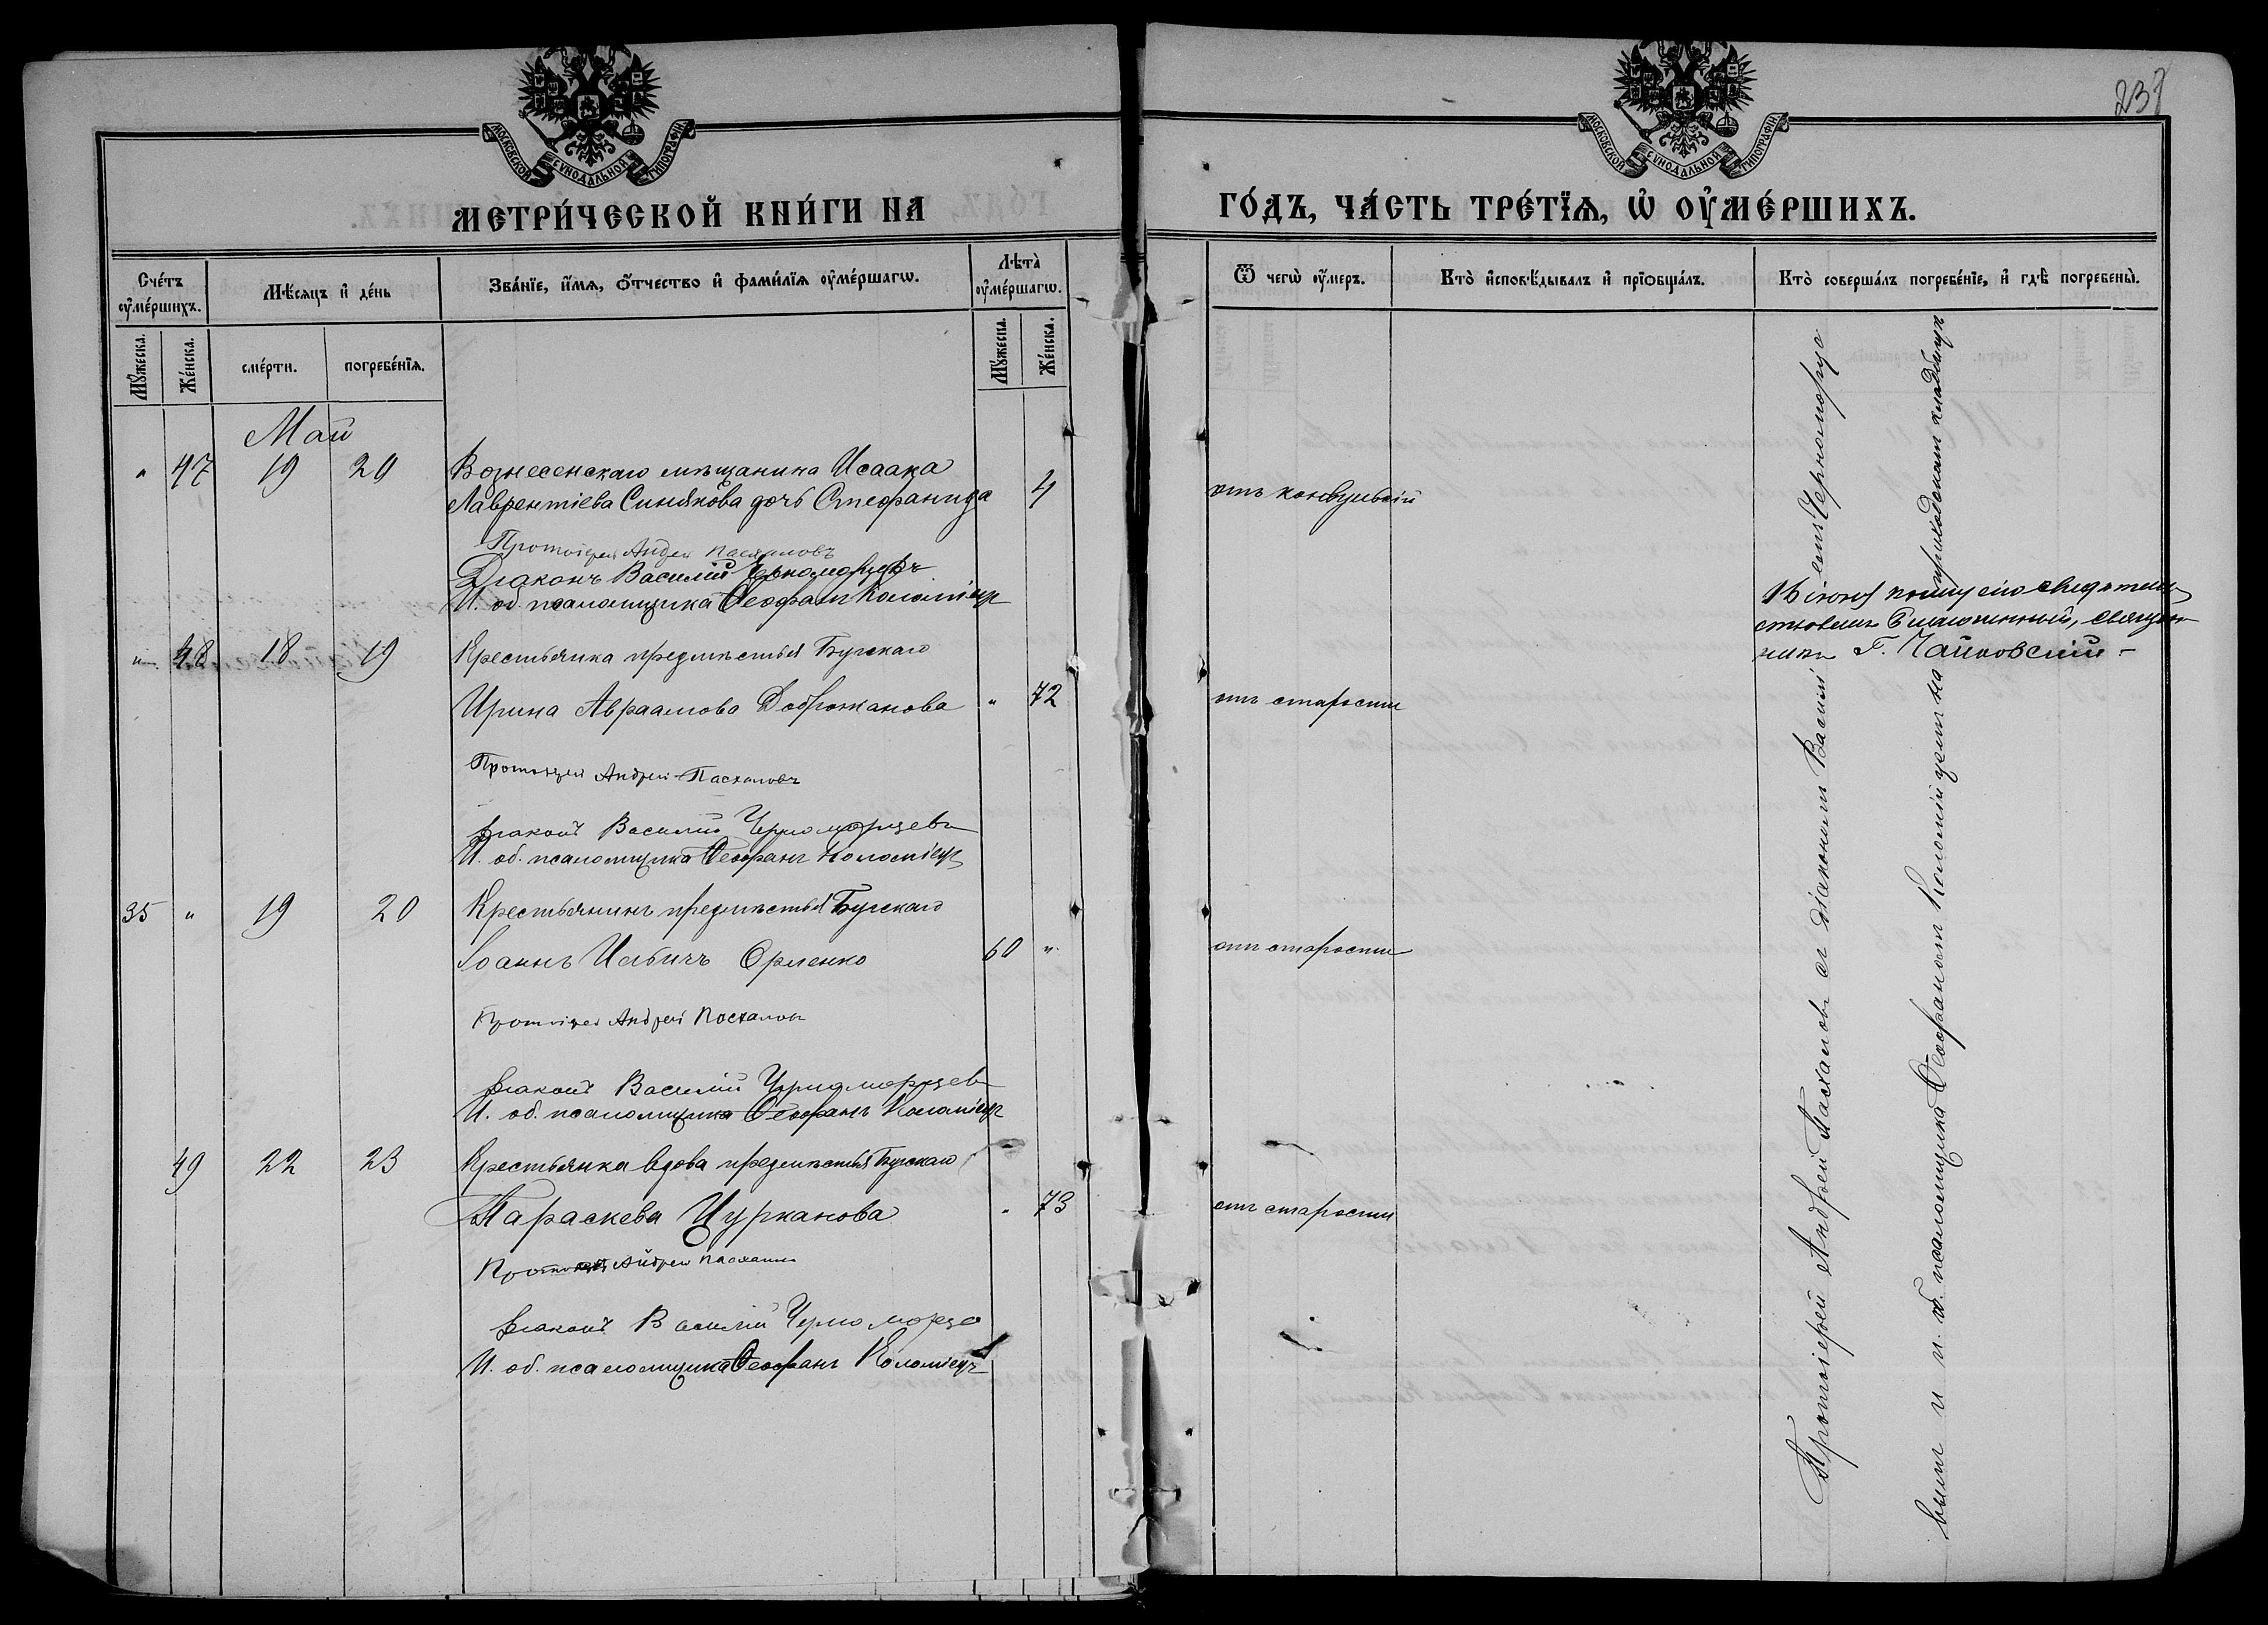 238
МОСКОВСКОЙ СУНОДАЛЬНОЙ ТИПОГРАФІИ
МОСКОВСКОЙ СУНОДАЛЬНОЙ ТИПОГРАФІИ
МЕТРИ́ЧЕСКОЙ КНИ́ГИ НА ГО́ДЪ, ЧА́СТЬ ТРЕ́ТЇѦ, Ѡ҆ ОУ҆МЕ́РШИХЪ.
Сче́тъ оу҆ме́ршихъ.
Мѣ́сяцъ и҆ де́нь
Зва́нїе, и҆́мѧ, ѻ҆́тчество и҆ фами́лїѧ оу҆ме́ршагѡ.
Лѣта̀ оу҆ме́ршагѡ.
Ѿ чегѡ̀ оу҆́меръ.
Кто̀ и҆сповѣ́дывалъ и҆ прїѻбща́лъ.
Кто̀ соверша́лъ погребе́нїе, и҆ гдѣ̀ погребены̀.
Му́жеска. Же́нска. сме́рти. погребе́нїѧ. Му́жеска. Же́нска.
Май
" 47 19 20 Вознесенскаго мѣщанина Исаака
Лаврентіева Синякова дочь Стефанида 4 отъ конвульсій
Протоіерей Андрей Пасхаловъ
Діаконъ Василій Черноморцевъ
И. об. псаломщика Ѳеофанъ Коломіецъ
" 48 18 19 Крестьянка предмѣстья Бугскаго
Ирина Авраамова Доброжанова " 72 отъ старости
Протоіерей Андрей Пасхаловъ
Діаконъ Василій Черноморцевъ
И. об. псаломщика Ѳеофанъ Коломіецъ
35 " 19 20 Крестьянинъ предмѣстья Бугскаго
Іоаннъ Ильичъ Орленко 60 " отъ старости
Протоіерей Андрей Пасхаловъ
Діаконъ Василій Черноморцевъ
И. об. псаломщика Ѳеофанъ Коломіецъ
49 22 23 Крестьянка вдова предмѣстья Бугскаго
Параскева Цурканова " 73 отъ старости
Протоіерей Андрей Пасхаловъ
Діаконъ Василій Черноморце
И. об. псаломщика Ѳеофанъ Коломіецъ
Протоіерей Андрей Пасхаловъ съ діакономъ Василіемъ Черноморце
вымъ и и. об. псаломщика Ѳеофаномъ Коломійцемъ на приходскомъ кладбищѣ
16 іюня книгу сію свидѣтель
ствовалъ Благочинный, священ
никъ Г. Чайковскій